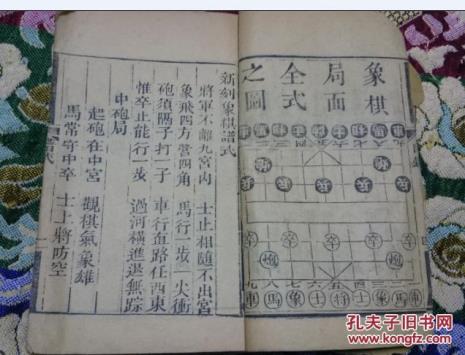 象棋
局面
全式
之圖
卒卒卒卒卒
九八七六五四三二一
車馬象士將士象馬車
新刻象棋譜式
將軍不離九宮內 士止相隨不出宮
象飛四方營四角 馬行一步一尖衝
砲須隔子打一子 車行直路任西東
惟卒止能行一步 過河橫進退無踪
中砲局
起砲在中宮 觀棋氣象雄
馬常守中卒 士上將防空
孔夫子旧书网
www.kongfz.com